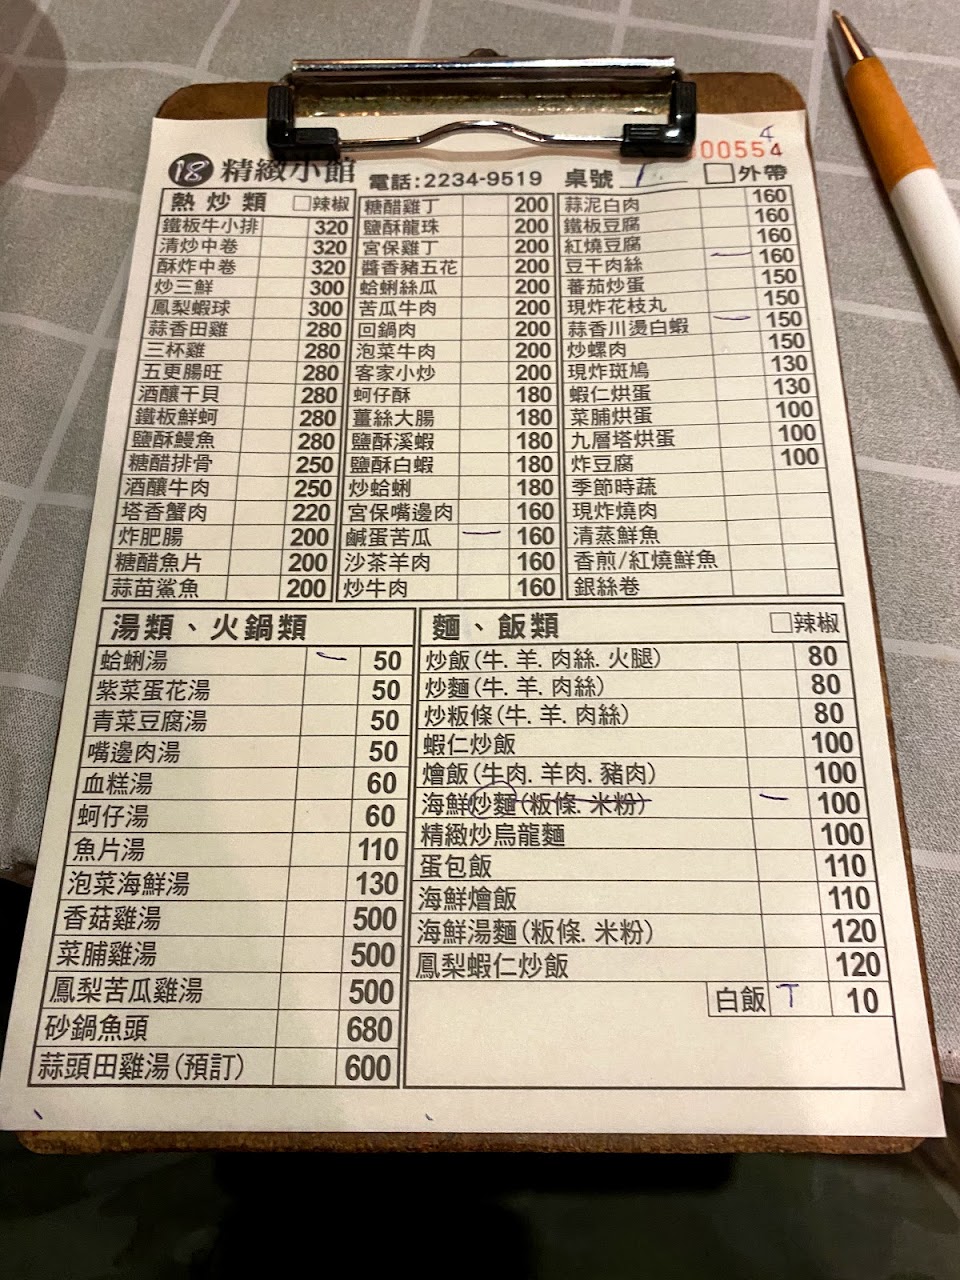 18 精緻小館 電話:2234-9519 桌號 外帶
4
00554
熱炒類 辣椒
鐵板牛小排 320
清炒中卷 320
酥炸中卷 320
炒三鮮 300
鳳梨蝦球 300
蒜香田雞 280
三杯雞 280
五更腸旺 280
酒釀干貝 280
鐵板鮮蚵 280
鹽酥鰻魚 280
糖醋排骨 250
酒釀牛肉 250
塔香蟹肉 220
炸肥腸 200
糖醋魚片 200
蒜苗鯊魚 200
糖醋雞丁 200
鹽酥龍珠 200
宮保雞丁 200
醬香豬五花 200
蛤蜊絲瓜 200
苦瓜牛肉 200
回鍋肉 200
泡菜牛肉 200
客家小炒 200
蚵仔酥 180
薑絲大腸 180
鹽酥溪蝦 180
鹽酥白蝦 180
炒蛤蜊 180
宮保嘴邊肉 160
鹹蛋苦瓜 160
沙茶羊肉 160
炒牛肉 160
蒜泥白肉 160
鐵板豆腐 160
紅燒豆腐 160
豆干肉絲 160
蕃茄炒蛋 150
現炸花枝丸 150
蒜香川燙白蝦 150
炒螺肉 150
現炸斑鳩 130
蝦仁烘蛋 130
菜脯烘蛋 100
九層塔烘蛋 100
炸豆腐 100
季節時蔬
現炸燒肉
清蒸鮮魚
香煎/紅燒鮮魚
銀絲卷
湯類、火鍋類
蛤蜊湯 50
紫菜蛋花湯 50
青菜豆腐湯 50
嘴邊肉湯 50
血糕湯 60
蚵仔湯 60
魚片湯 110
泡菜海鮮湯 130
香菇雞湯 500
菜脯雞湯 500
鳳梨苦瓜雞湯 500
砂鍋魚頭 680
蒜頭田雞湯(預訂) 600
麵、飯類 辣椒
炒飯(牛.羊.肉絲.火腿) 80
炒麵(牛.羊.肉絲) 80
炒粄條(牛.羊.肉絲) 80
蝦仁炒飯 100
燴飯(牛肉.羊肉.豬肉) 100
海鮮炒麵(粄條.米粉) 100
精緻炒烏龍麵 100
蛋包飯 110
海鮮燴飯 110
海鮮湯麵(粄條.米粉) 120
鳳梨蝦仁炒飯 120
白飯 T 10